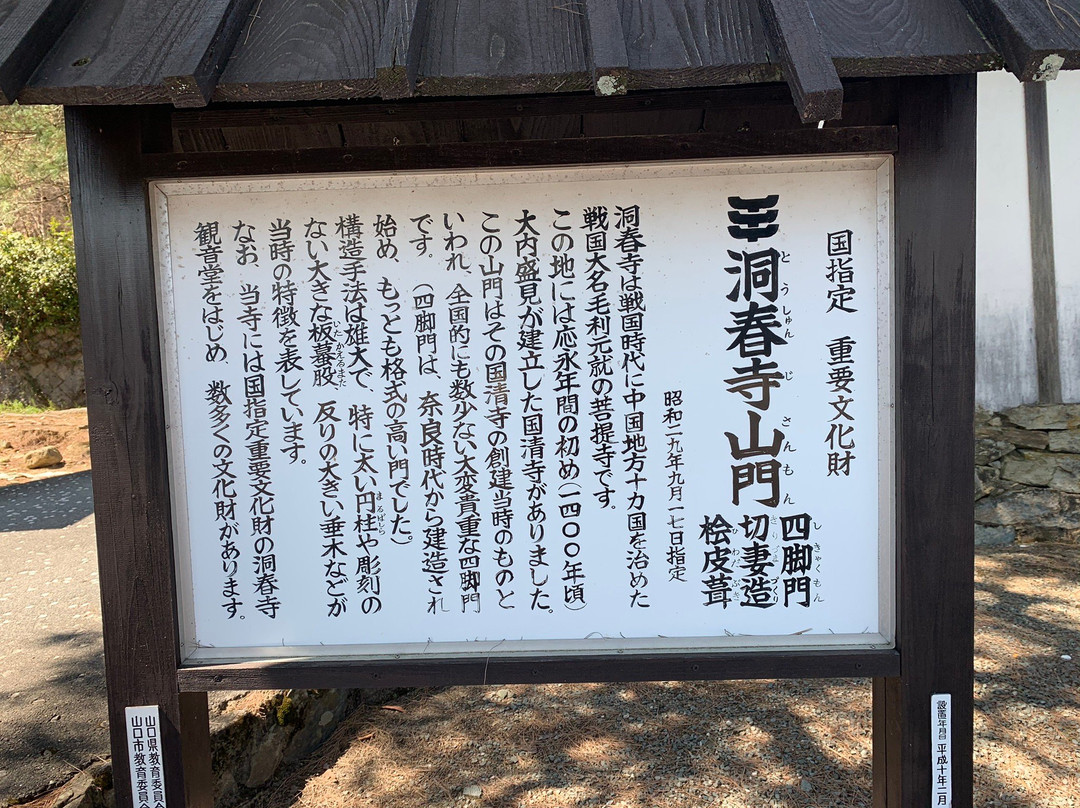 国指定 重要文化財
洞春寺山門
とうしゅんじさんもん
四脚門
しきゃくもん
切妻造
きりづまづくり
桧皮葺
ひわだぶき
昭和二九年九月一七日指定
洞春寺は戦国時代に中国地方十カ国を治めた
戦国大名毛利元就の菩提寺です。
この地には応永年間の初め(一四〇〇年頃)
大内盛見が建立した国清寺がありました。
この山門はその国清寺の創建当時のものと
いわれ、全国的にも数少ない大変貴重な四脚門
です。(四脚門は、奈良時代から建造され
始め、もっとも格式の高い門でした。)
構造手法は雄大で、特に太い円柱や彫刻の
まるばしら
ない大きな板蟇股、反りの大きい垂木などが
いたかえるまた
当時の特徴を表しています。
なお、当寺には国指定重要文化財の洞春寺
観音堂をはじめ、数多くの文化財があります。
設置年月日 平成十年二月
山口県教育委員会
山口市教育委員会